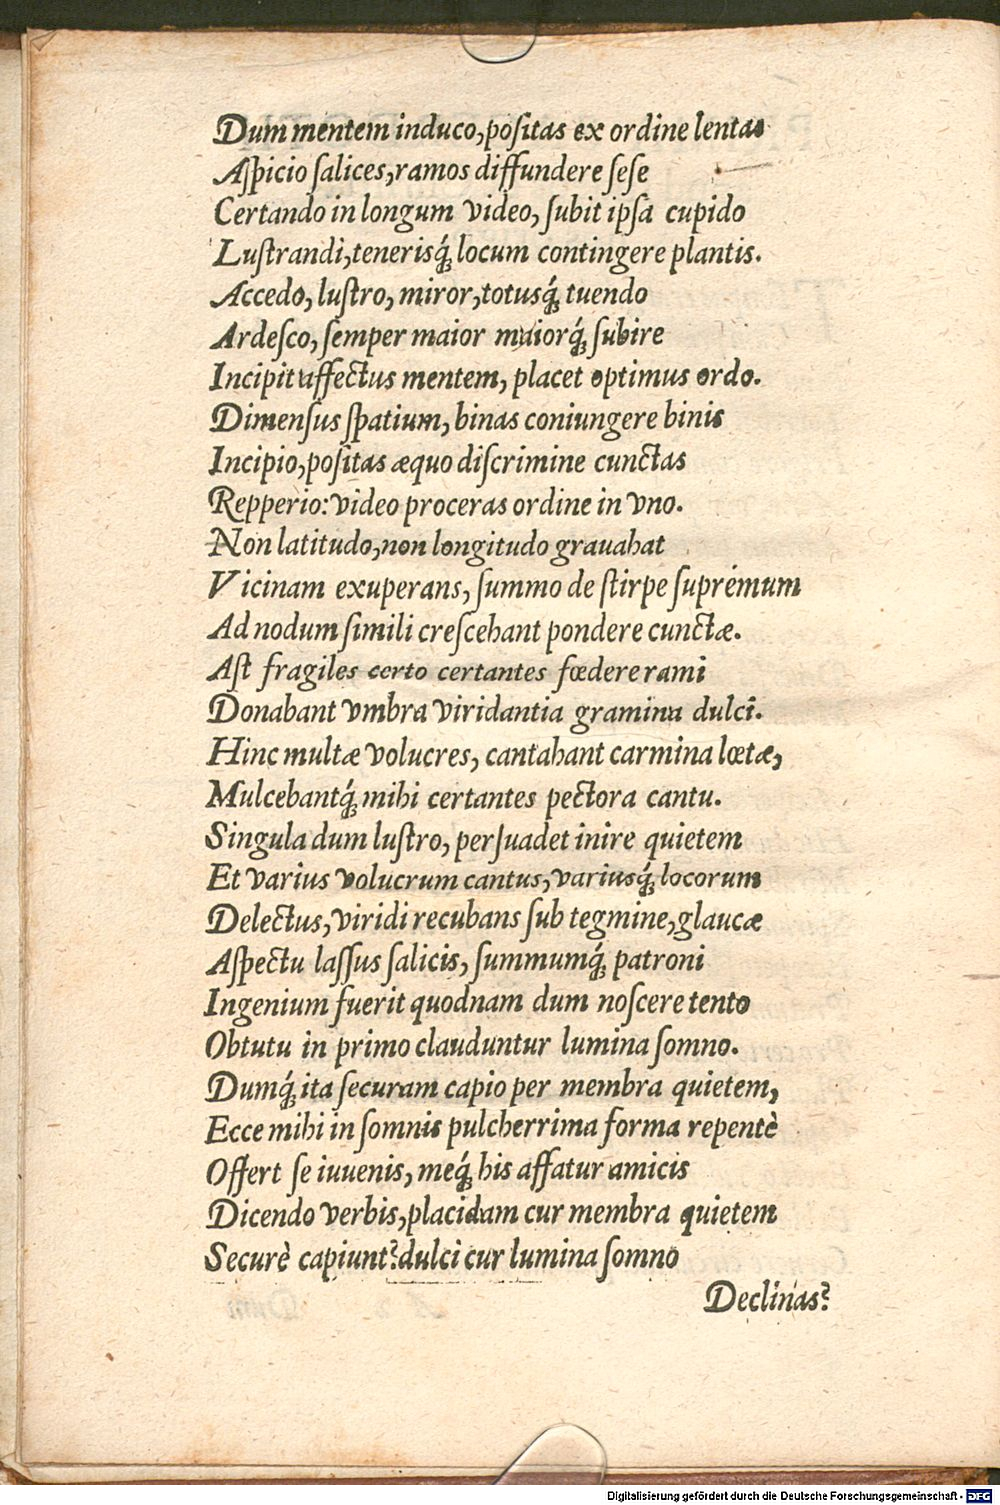 Dum mentem induco,positas ex ordine lentas
Aſpicio ſalices,ramos diffundere ſeſe
Certando in longum video, ſubit ipſa cupido
Luſtrandi,tenerisq́; locum contingere plantis.
Accedo, luſtro, miror,totusq́; tuendo
Ardeſco, ſemper maior maiorq́; ſubire
Incipit affectus mentem, placet optimus ordo.
Dimenſus ſpatium, binas coniungere binis
Incipio,poſitas æquo diſcrimine cunctas
Repperio: video proceras ordine in vno.
Non latitudo,non longitudo grauabat
Vicinam exuperans, ſummo de ſtirpe ſupremum
Ad nodum ſimili creſcebant pondere cunctæ.
Aſt fragiles certo certantes fœdere rami
Donabant vmbra viridantia gramina dulci.
Hinc multæ volucres, cantabant carmina lœtæ,
Mulcebantq́; mihi certantes pectora cantu.
Singula dum luſtro, perſuadet inire quietem
Et varius volucrum cantus,variusq́; locorum
Delectus,viridi recubans ſub tegmine,glaucæ
Aſpectu laſſus ſalicis, ſummumq́; patroni
Ingenium fuerit quodnam dum noſcere tento
Obtutu in primo clauduntur lumina ſomno.
Dumq́; ita ſecuram capio per membra quietem,
Ecce mihi in ſomnis pulcherrima forma repentè
Offert ſe iuuenis, meq́; his affatur amicis
Dicendo verbis,placidam cur membra quietem
Securè capiunt?dulci cur lumina ſomno
Declinas?
Digitalisierung gefördert durch die Deutsche Forschungsgemeinschaft - DFG